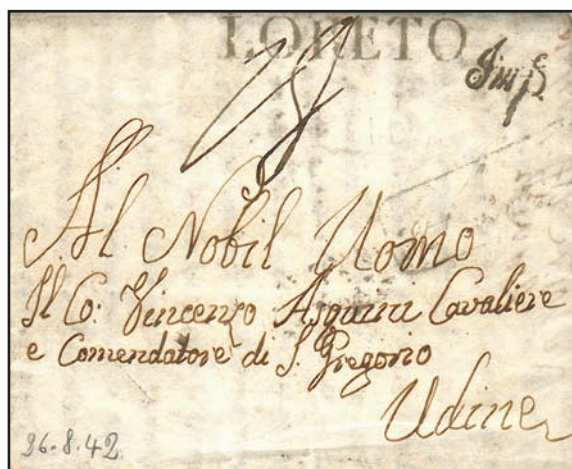 LORETO
Al Nobil Uomo
Il Co: Vincenzo Asquini Cavaliere
e Comendatore di S. Gregorio
Udine
26.8.42